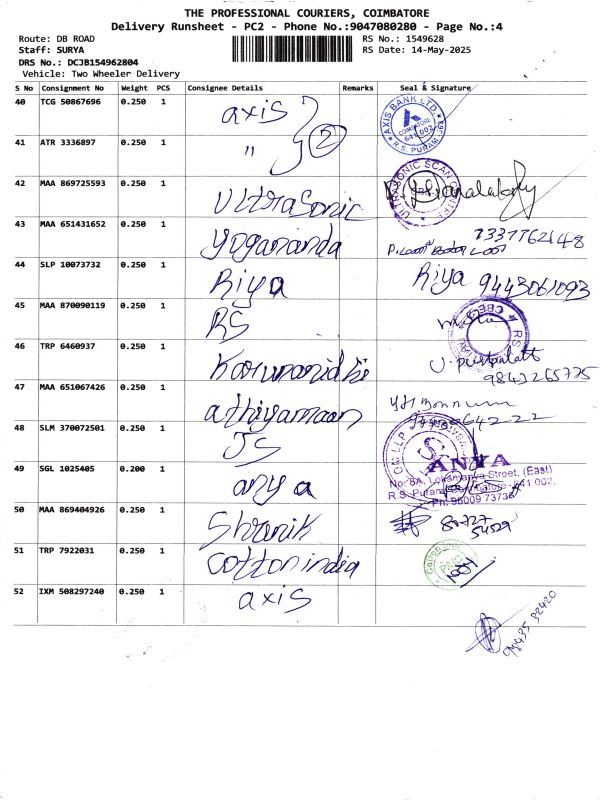 THE PROFESSIONAL COURIERS, COIMBATORE
Delivery Runsheet - PC2 - Phone No.:9047080280 - Page No.:4
Route: DB ROAD
RS No.: 1549628
Staff: SURYA
RS Date: 14-May-2025
DRS No.: DCJB154962804
Vehicle: Two Wheeler Delivery
S No Consignment No Weight PCS Consignee Details Remarks Seal & Signature
40 TCG 50867696 0.250 1 axis
AXIS BANK LTD.
COIMBATORE
641 002
R.S. PURAM
41 ATR 3336897 0.250 1 " 2
42 MAA 869725593 0.250 1 ULtraSonic
ULTRASONIC SCAN CENTRE
43 MAA 651431652 0.250 1 yogananda
7337762148
44 SLP 10073732 0.250 1 Riya Riya 9443061093
45 MAA 870090119 0.250 1 RS
46 TRP 6460937 0.250 1 Karunanidhi
9843265775
47 MAA 651067426 0.250 1 athiyamaan
48 SLM 370072501 0.250 1 JS
49 SGL 1025405 0.200 1 arya
ANYA
No: 8A, Lokamanya Street, (East)
R.S. Puram, Coimbatore - 641 002.
Ph: 96009 73736
50 MAA 869404926 0.250 1 Shranik
51 TRP 7922031 0.250 1 Cotton india
52 IXM 508297240 0.250 1 axis
98435 32420